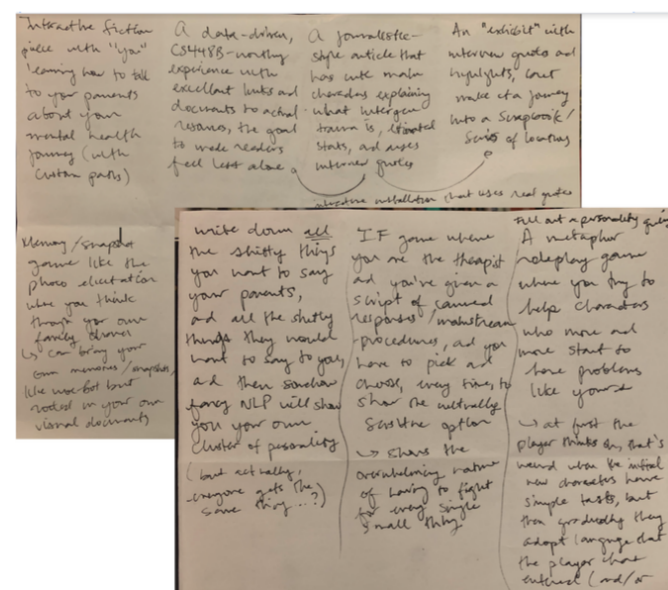 Interactive fiction
piece with "you"
learning how to talk
to your parents
about your
mental health
journey (with
custom paths)
A data-driven,
CS448B-worthy
experience with
excellent links and
documents to actual
resources, the goal
to make readers
feel less alone
A journalistic-
style article that
has cute main
characters explaining
what intergen
trauma is,
stats, and uses
interview quotes
An "exhibit" with
interview quotes and
highlights, but
make it a journey
into a scrapbook/
series of locations
installation that uses real quotes
Memory/snapshot
game like the
photo elicitation
where you think
through your own
family
↳ can bring your
own memories/snapshots,
like but
rooted in your own
visual documents
write down all
the shitty things
you want to say
your parents,
and all the shitty
things they would
want to say to you,
and then somehow
fancy NLP will show
you your own
cluster of personality
(but actually,
everyone gets the
same thing...?)
IF game where
you are the therapist
and you're given a
script of canned
responses/mainstream
procedures, and you
have to pick and
choose, every time, to
show the culturally
sensitive option
↳ shows the
overwhelming nature
of having to fight
for every single
small thing
Fill out a personality
A metaphor
roleplay game
where you try to
help characters
who more and
more start to
have problems
like yours
↳ at first the
player thinks oh, that's
weird when the initial
new characters have
simple tasks, but
then gradually they
adopt language that
the player
entered (and/or